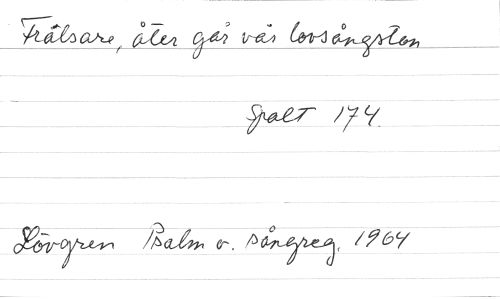 Frälsare, åter går vår lovsångston
Spalt 174.
Lövgren Psalm o. sångreg. 1964